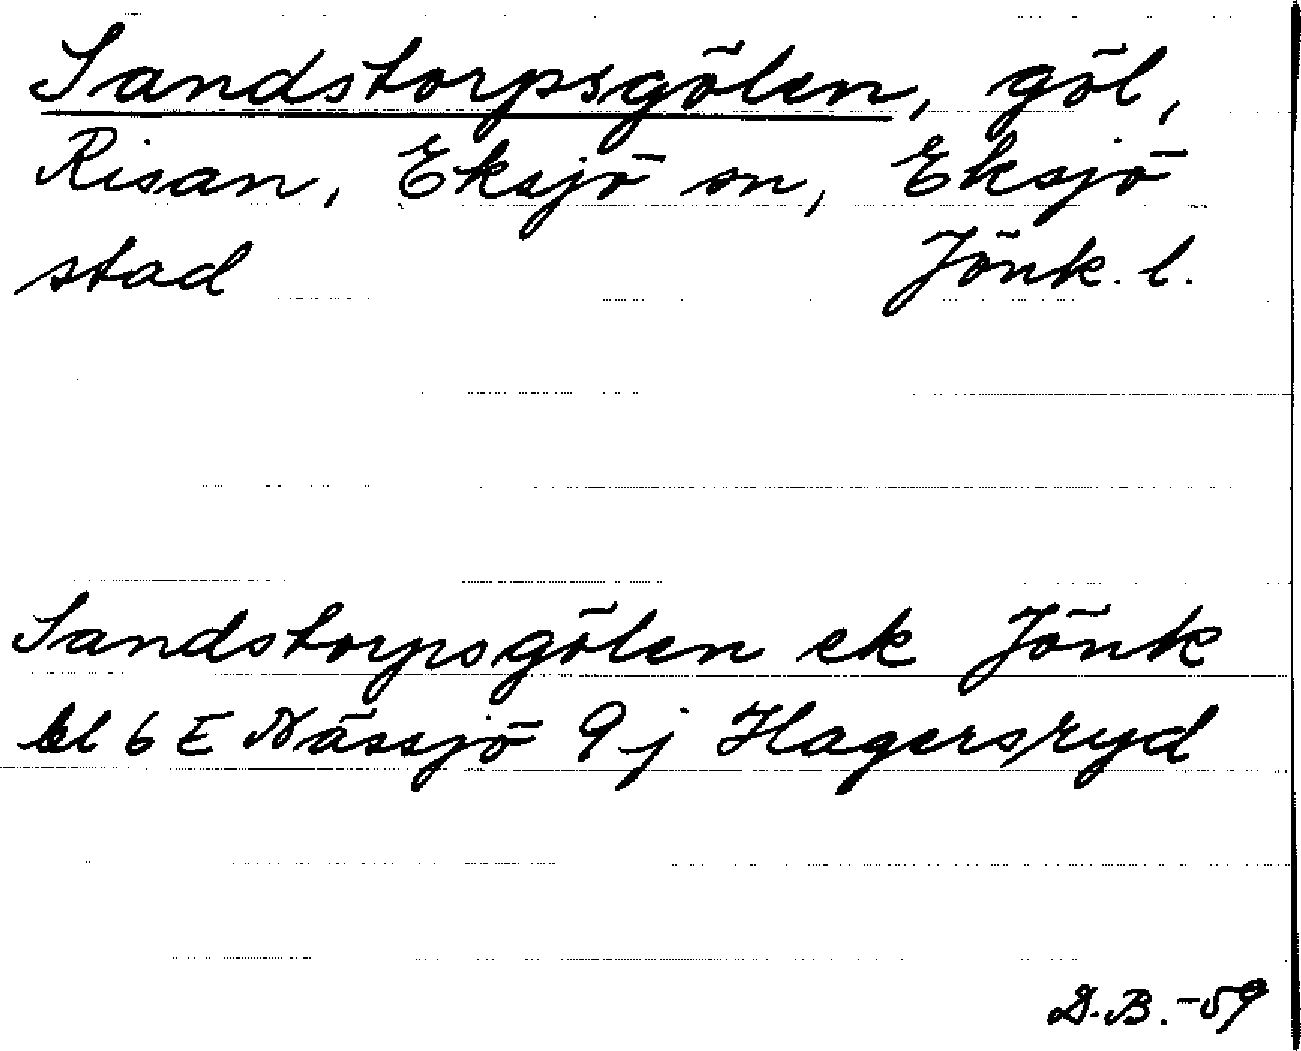 Sandstorpsgölen, göl,
Risan, Eksjö sn, Eksjö
stad Jönk. l.
Sandstorpsgölen ek Jönk
bl 6 E Nässjö 9 j Hagersryd
D.B.-59